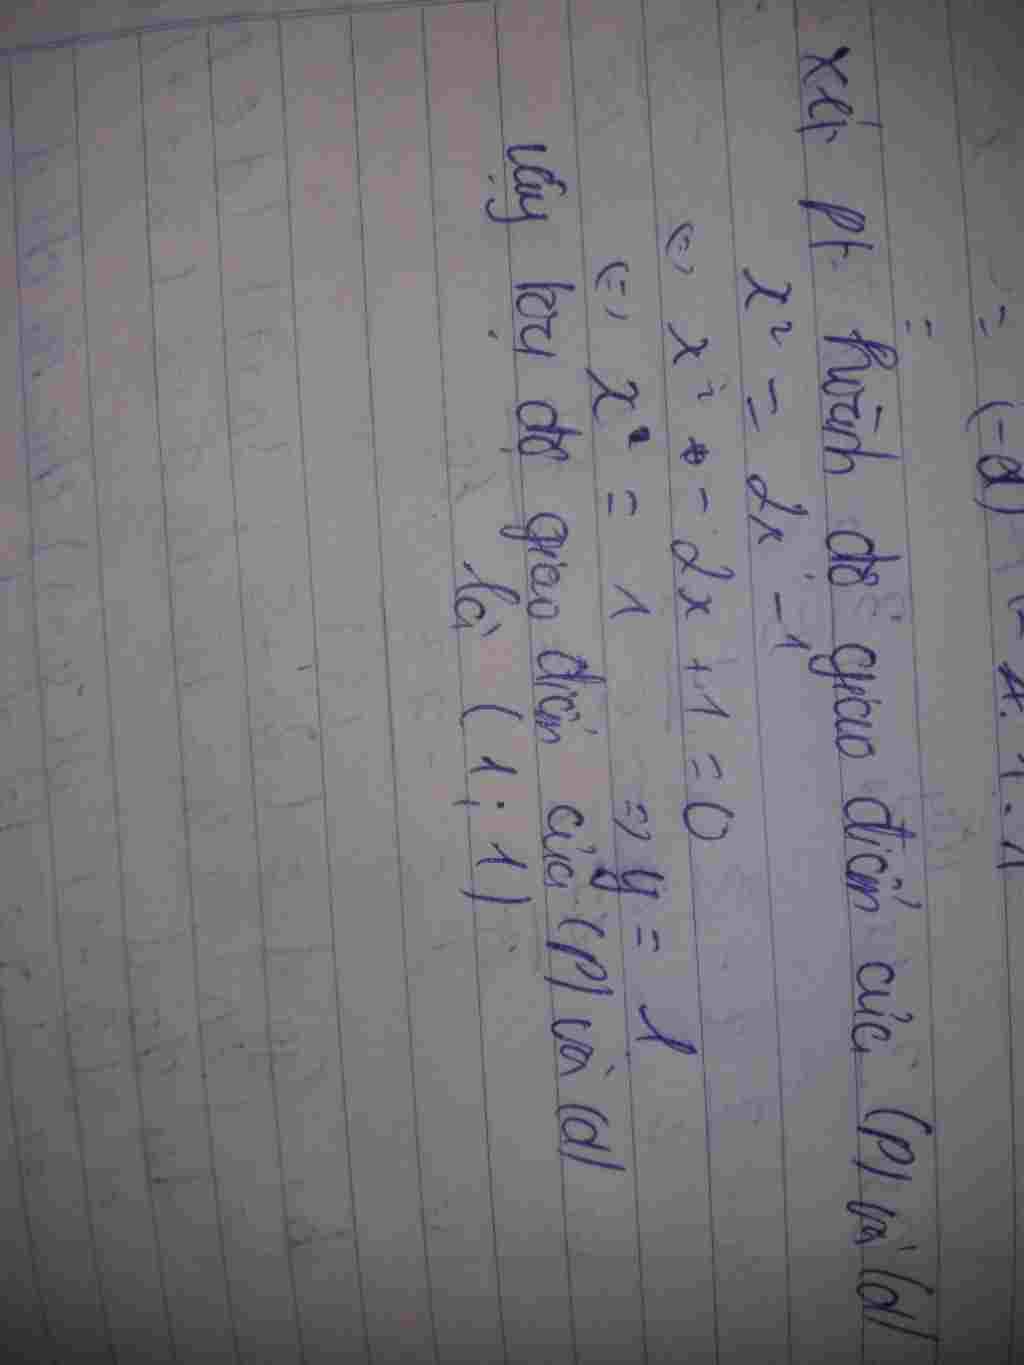 = (-2) - 4.1.1
=
xét pt hoành độ giao điểm của (P) và (d)
x² = 2x - 1
(=) x² - 2x + 1 = 0
(=) x = 1 => y = 1
Vậy toạ độ giao điểm của (P) và (d)
là (1; 1)